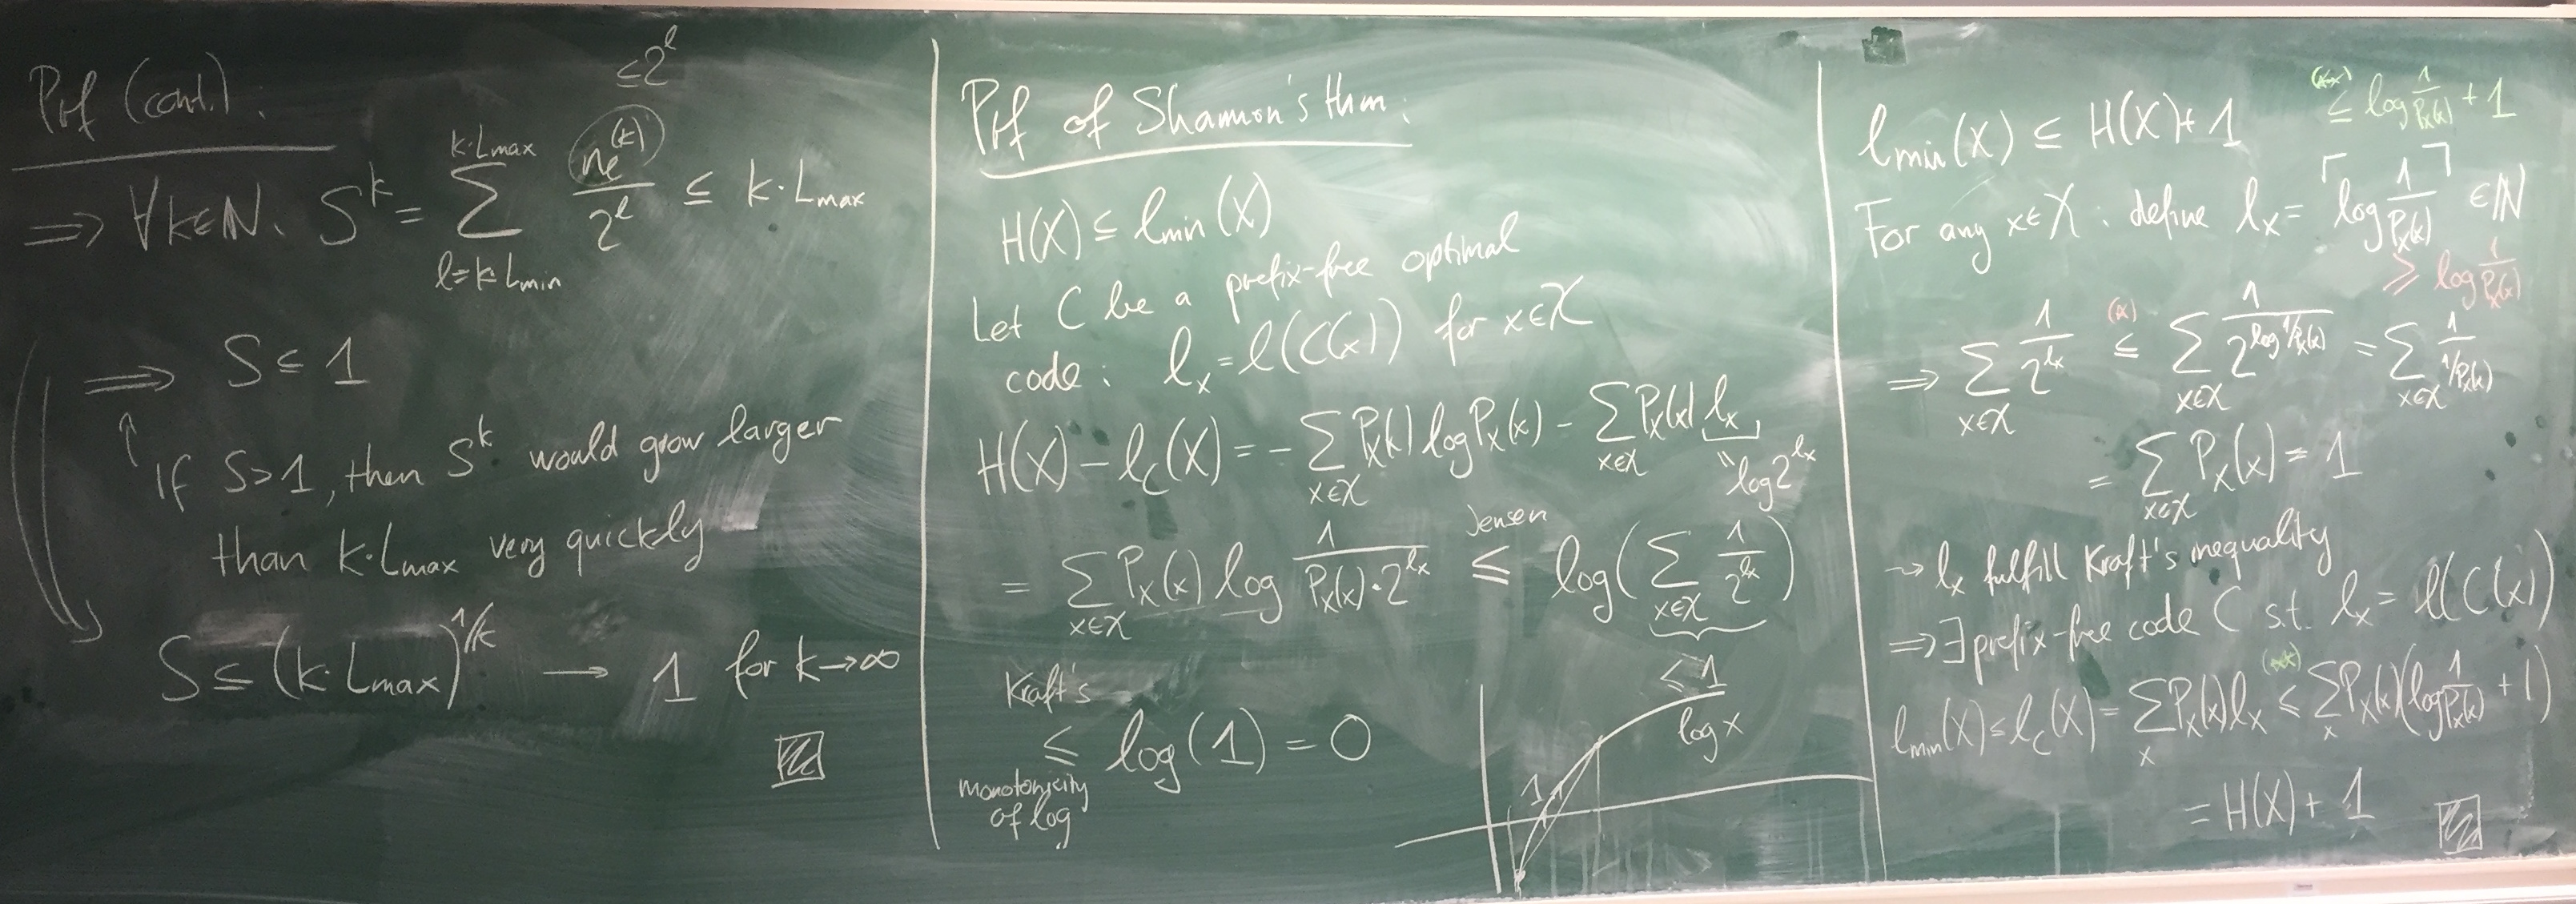 Prf (cont.):
≤ 2^l
⇒ ∀k∈ℕ. S^k = ∑_{l=k·Lmin}^{k·Lmax} n_l^{(k)} / 2^l ≤ k·Lmax
⇒ S ≤ 1
↑ if S>1, then S^k would grow larger
than k·Lmax very quickly
S ≤ (k·Lmax)^{1/k} → 1 for k→∞
Prf of Shannon's thm:
H(X) ≤ l_min(X)
Let C be a prefix-free optimal
code: l_x = l(C(x)) for x∈𝒳
H(X) - l_C(X) = - ∑_{x∈𝒳} P_X(x) log P_X(x) - ∑_{x∈𝒳} P_X(x) l_x
" log 2^{l_x}
Jensen
= ∑_{x∈𝒳} P_X(x) log 1/(P_X(x)·2^{l_x}) ≤ log(∑_{x∈𝒳} 1/2^{l_x})
≤ 1
Kraft's
≤ log(1) = 0
monotonicity
of log
log x
1
l_min(X) ≤ H(X)+1
(**) ≤ log 1/P_X(x) + 1
For any x∈𝒳: define l_x = ⌈log 1/P_X(x)⌉ ∈ℕ
≥ log 1/P_X(x)
⇒ ∑_{x∈𝒳} 1/2^{l_x} (*) ≤ ∑_{x∈𝒳} 1/2^{log 1/P_X(x)} = ∑_{x∈𝒳} 1/(1/P_X(x))
= ∑_{x∈𝒳} P_X(x) = 1
→ l_x fulfill Kraft's inequality
⇒ ∃ prefix-free code C s.t. l_x = l(C(x))
l_min(X) ≤ l_C(X) = ∑_x P_X(x) l_x (**) ≤ ∑_x P_X(x)(log 1/P_X(x) + 1)
= H(X) + 1